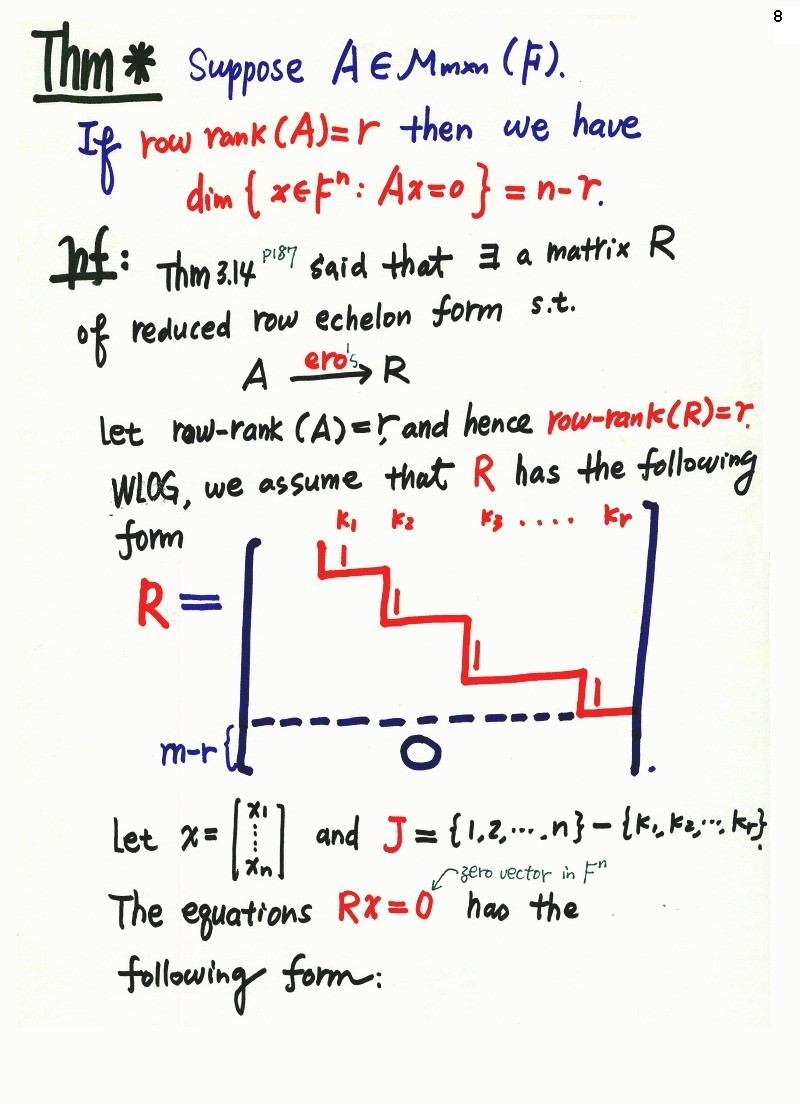 8
Thm* Suppose A ∈ Mmxn (F).
If row rank(A)=r then we have
dim { x∈Fⁿ : Ax=0 } = n-r.
pf: Thm 3.14 P187 said that ∃ a matrix R
of reduced row echelon form s.t.
ero's
A → R
Let row-rank (A)=r, and hence row-rank(R)=r.
WLOG, we assume that R has the following
form
k₁ k₂ k₃ .... kr
R = [
1
1
1
1
m-r{ O ].
Let x = [x₁ ⋮ xn] and J = {1,2,...,n} - {k₁,k₂,...,kr}.
zero vector in Fⁿ
The equations Rx=0 has the
following form: